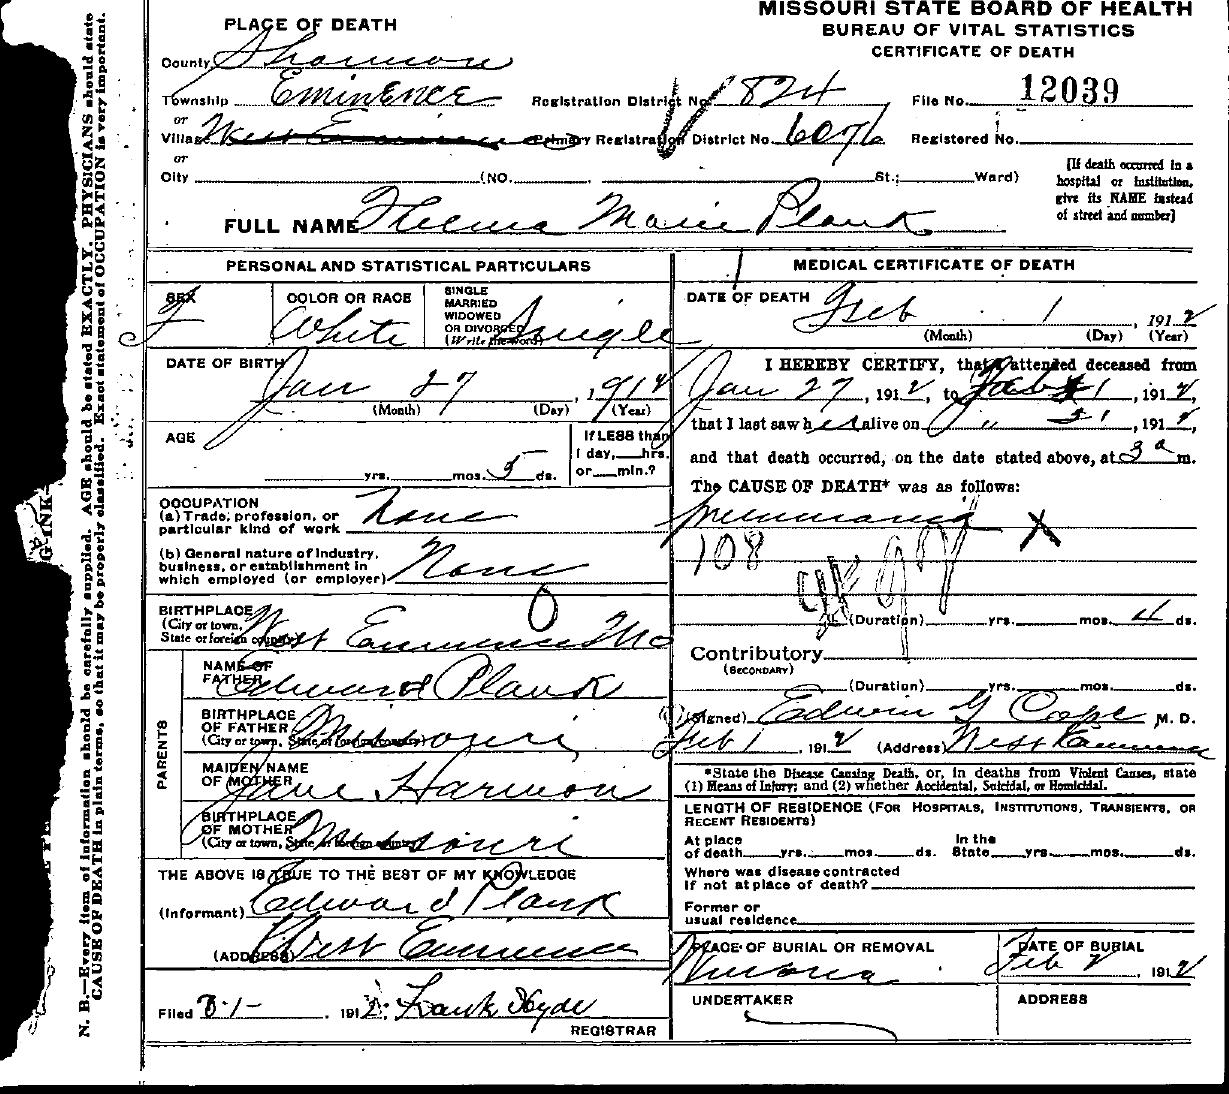 MISSOURI STATE BOARD OF HEALTH
BUREAU OF VITAL STATISTICS
CERTIFICATE OF DEATH
PLACE OF DEATH
County Shannon
Township Eminence Registration District No. 824 File No. 12039
or
Village West Eminence Primary Registration District No. 6076 Registered No.
or
City (NO. St.; Ward)
[If death occurred in a
hospital or institution,
give its NAME instead
of street and number]
FULL NAME Thelma Marie Plank
PERSONAL AND STATISTICAL PARTICULARS
SEX
F
COLOR OR RACE
White
SINGLE
MARRIED
WIDOWED
OR DIVORCED
(Write the word)
Single
DATE OF BIRTH
Jan 27, 1912
(Month) (Day) (Year)
AGE
yrs. mos. 5 ds.
If LESS than
1 day, hrs.
or min.?
OCCUPATION
(a) Trade, profession, or
particular kind of work None
(b) General nature of industry,
business, or establishment in
which employed (or employer) None
BIRTHPLACE
(City or town,
State or foreign country) West Eminence Mo
PARENTS
NAME OF
FATHER Edward Plank
BIRTHPLACE
OF FATHER
(City or town, State or foreign country) Missouri
MAIDEN NAME
OF MOTHER Jane Harmon
BIRTHPLACE
OF MOTHER
(City or town, State or foreign country) Missouri
THE ABOVE IS TRUE TO THE BEST OF MY KNOWLEDGE
(Informant) Edward Plank
(ADDRESS) West Eminence
Filed 3-1-, 1912, Frank Hyde
REGISTRAR
MEDICAL CERTIFICATE OF DEATH
DATE OF DEATH Feb 1, 1912
(Month) (Day) (Year)
I HEREBY CERTIFY, that I attended deceased from
Jan 27, 1912, to Feb 1, 1912,
that I last saw her alive on J " 31, 1912,
and that death occurred, on the date stated above, at 3 a m.
The CAUSE OF DEATH* was as follows:
pneumonia X
108
(Duration) yrs. mos. 4 ds.
Contributory
(SECONDARY)
(Duration) yrs. mos. ds.
(Signed) Edwin G Cope, M. D.
Feb 1, 1912 (Address) West Eminence
*State the Disease Causing Death, or, in deaths from Violent Causes, state
(1) Means of Injury; and (2) whether Accidental, Suicidal, or Homicidal.
LENGTH OF RESIDENCE (FOR HOSPITALS, INSTITUTIONS, TRANSIENTS, OR
RECENT RESIDENTS)
At place In the
of death yrs. mos. ds. State yrs. mos. ds.
Where was disease contracted
if not at place of death?
Former or
usual residence
PLACE OF BURIAL OR REMOVAL
Winona
DATE OF BURIAL
Feb 2, 1912
UNDERTAKER
ADDRESS
N. B.—Every item of information should be carefully supplied. AGE should be stated EXACTLY. PHYSICIANS should state
CAUSE OF DEATH in plain terms, so that it may be properly classified. Exact statement of OCCUPATION is very important.
G INK